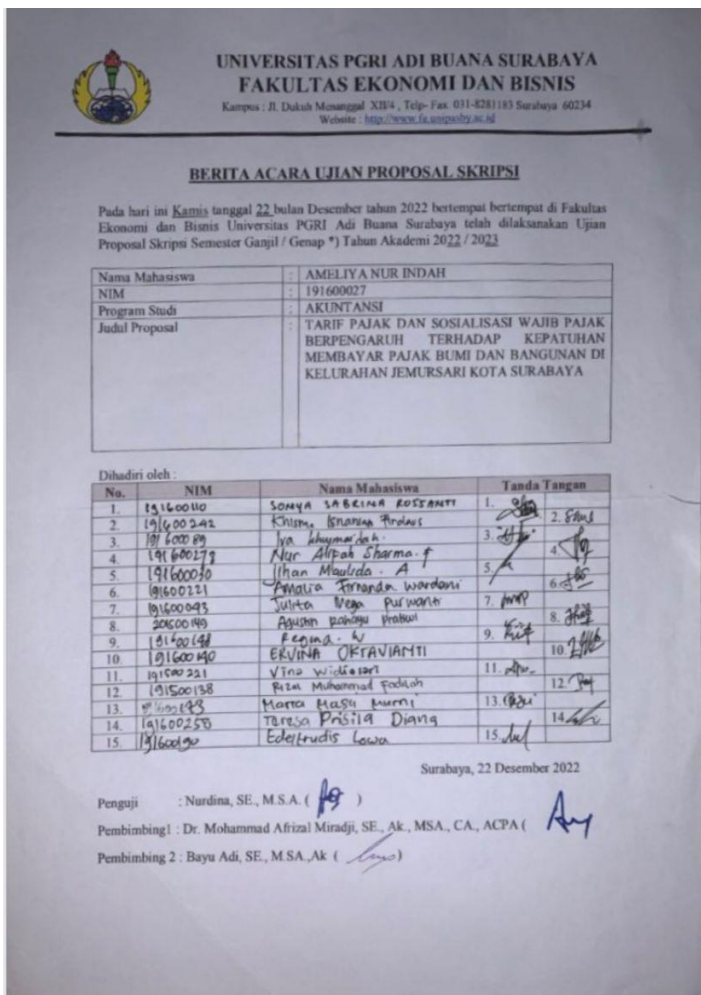 UNIVERSITAS PGRI ADI BUANA SURABAYA
FAKULTAS EKONOMI DAN BISNIS
Kampus : Jl. Dukuh Menanggal XII/4 , Telp- Fax. 031-8281183 Surabaya 60234
Website : http://www.fe.unipasby.ac.id
BERITA ACARA UJIAN PROPOSAL SKRIPSI
Pada hari ini Kamis tanggal 22 bulan Desember tahun 2022 bertempat bertempat di Fakultas
Ekonomi dan Bisnis Universitas PGRI Adi Buana Surabaya telah dilaksanakan Ujian
Proposal Skripsi Semester Ganjil / Genap *) Tahun Akademi 2022 / 2023
Nama Mahasiswa : AMELIYA NUR INDAH
NIM : 191600027
Program Studi : AKUNTANSI
Judul Proposal : TARIF PAJAK DAN SOSIALISASI WAJIB PAJAK
BERPENGARUH TERHADAP KEPATUHAN
MEMBAYAR PAJAK BUMI DAN BANGUNAN DI
KELURAHAN JEMURSARI KOTA SURABAYA
Dihadiri oleh :
No. NIM Nama Mahasiswa Tanda Tangan
1. 191600110 SONYA SABRINA ROSSANTI 1.
2. 191600242 Khisma Isnaniya Firdaus 2.
3. 191600089 Iva khumaidah. 3.
4. 191600278 Nur Alifah Sharma. f 4.
5. 191600030 Ilhan Maulida. A 5.
6. 191600221 Amalia Fernanda Wardani 6.
7. 191600093 Julita Mega Purwanti 7.
8. 201500149 Agustin Rahayu Pratiwi 8.
9. 191600148 Regina. W 9.
10. 191600140 ERVINA OKTAVIANTI 10.
11. 191500221 Vina Widiasari 11.
12. 191500138 Rizal Muhammad Fadilah 12.
13. Maria Magu Murni 13.
14. 191600250 Teresa Prisila Diana 14.
15. 191600190 Edeltrudis Lowa 15.
Surabaya, 22 Desember 2022
Penguji : Nurdina, SE., M.S.A. ( )
Pembimbing1 : Dr. Mohammad Afrizal Miradji, SE., Ak., MSA., CA., ACPA (
Pembimbing 2 : Bayu Adi, SE., M.SA.,Ak ( )